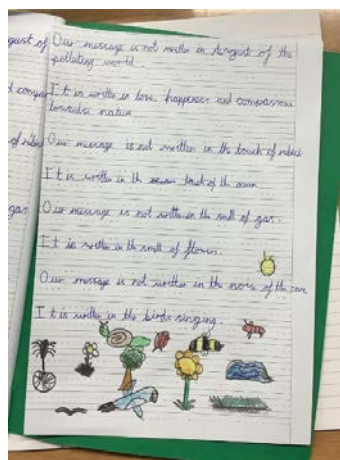 gust of
Our message is not written in disgust of the
polluting world.
compas
It is written in love, happiness and compassion
towards nature.
Our message is not written in the touch of
It is written in the touch of the
gas
Our message is not written in the smell of gas.
It is written in the smell of flowers.
Our message is not written in the noise of the cars
It is written in the birds singing.